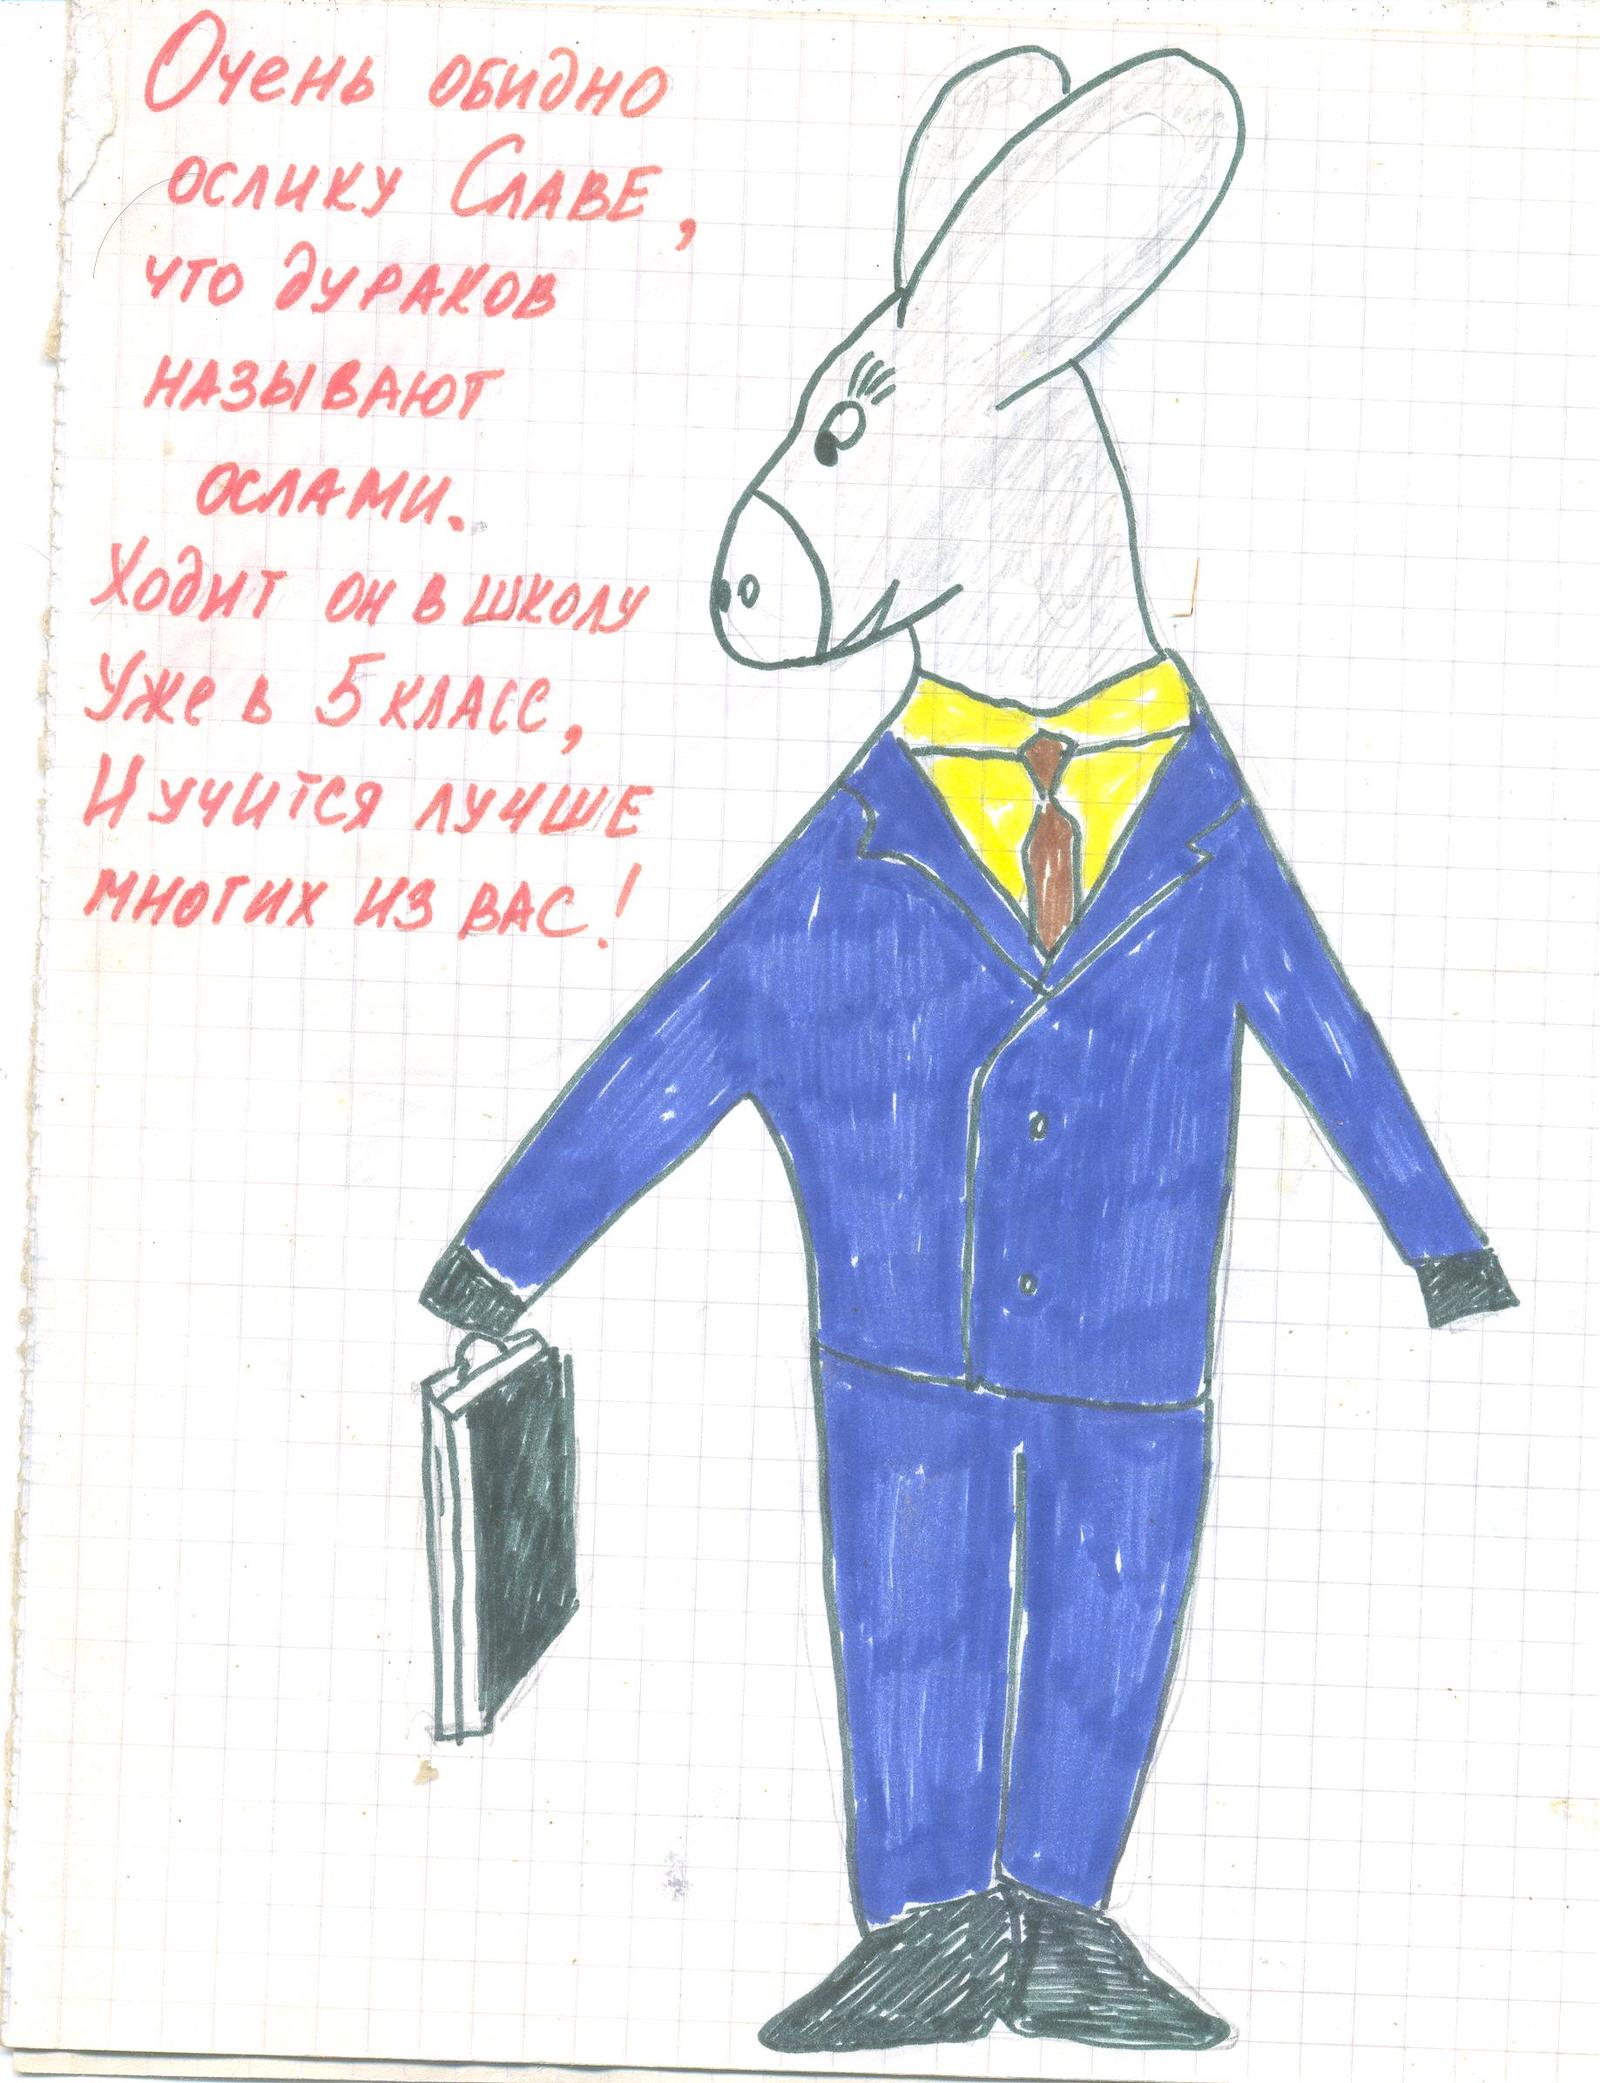 Очень обидно
ослику Славе,
что дураков
называют
ослами.
Ходит он в школу
Уже в 5 класс,
И учится лучше
многих из вас!